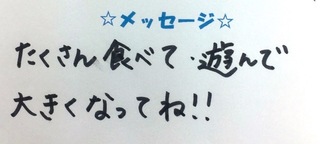 ☆メッセージ☆
たくさん食べて・遊んで
大きくなってね!!